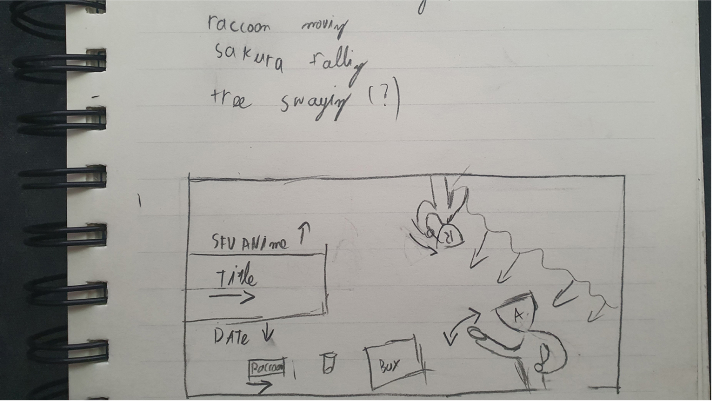 raccoon moving
sakura falling
tree swaying (?)
SFU ANime
Title
DATe
Raccoon
Box
R
A